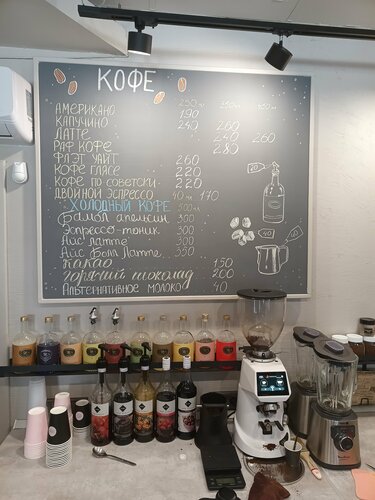 КОФЕ
АМЕРИКАНО 250 мл 350 мл 450 мл
КАПУЧИНО 190
ЛАТТЕ 240 260
РАФ КОФЕ 240 260
ФЛЭТ УАЙТ 280
КОФЕ ГЛЯСЕ 260
КОФЕ ПО СОВЕТСКИ 220
ДВОЙНОЙ ЭСПРЕССО 220
40 мл 170
ХОЛОДНЫЙ КОФЕ 500 мл
Бамбл апельсин 350
Эспрессо-тоник 300
Айс латте 300
Айс Бабл Латте 350
Какао 150
горячий шоколад 200
Альтернативное молоко 40
20
40
20